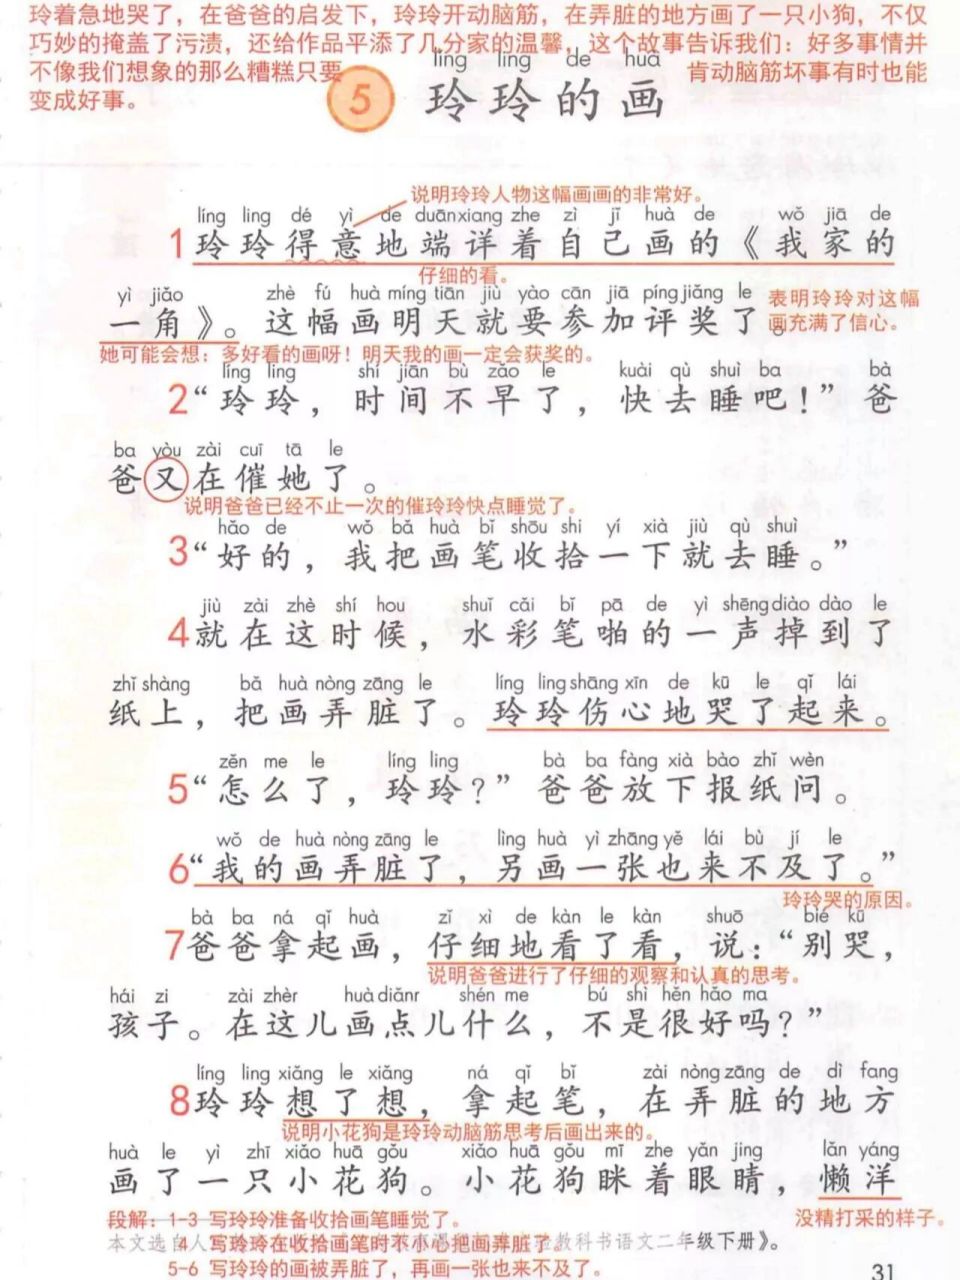 玲着急地哭了，在爸爸的启发下，玲玲开动脑筋，在弄脏的地方画了一只小狗，不仅
巧妙的掩盖了污渍，还给作品平添了几分家的温馨，这个故事告诉我们：好多事情并
不像我们想象的那么糟糕只要 肯动脑筋坏事有时也能
变成好事。
líng líng de huà
5 玲玲的画
说明玲玲人物这幅画画的非常好。
líng ling dé yì de duānxiang zhe zì jǐ huà de wǒ jiā de
1 玲玲得意地端详着自己画的《我家的
仔细的看。
yì jiǎo zhè fú huà míng tiān jiù yào cān jiā píng jiǎng le
一角》。这幅画明天就要参加评奖了。
表明玲玲对这幅
画充满了信心。
她可能会想：多好看的画呀！明天我的画一定会获奖的。
líng ling shí jiān bù zǎo le kuài qù shuì ba bà
2“玲玲，时间不早了，快去睡吧！”爸
ba yòu zài cuī tā le
爸又在催她了。
说明爸爸已经不止一次的催玲玲快点睡觉了。
hǎo de wǒ bǎ huà bǐ shōu shi yí xià jiù qù shuì
3“好的，我把画笔收拾一下就去睡。”
jiù zài zhè shí hou shuǐ cǎi bǐ pā de yì shēng diào dào le
4就在这时候，水彩笔啪的一声掉到了
zhǐ shàng bǎ huà nòng zāng le líng ling shāng xīn de kū le qǐ lái
纸上，把画弄脏了。玲玲伤心地哭了起来。
zěn me le líng ling bà ba fàng xià bào zhǐ wèn
5“怎么了，玲玲？”爸爸放下报纸问。
wǒ de huà nòng zāng le lìng huà yì zhāng yě lái bù jí le
6“我的画弄脏了，另画一张也来不及了。”
玲玲哭的原因。
bà ba ná qǐ huà zǐ xì de kàn le kàn shuō bié kū
7爸爸拿起画，仔细地看了看，说：“别哭，
说明爸爸进行了仔细的观察和认真的思考。
hái zi zài zhèr huà diǎnr shén me bú shì hěn hǎo ma
孩子。在这儿画点儿什么，不是很好吗？”
líng ling xiǎng le xiǎng ná qǐ bǐ zài nòng zāng de dì fang
8玲玲想了想，拿起笔，在弄脏的地方
说明小花狗是玲玲动脑筋思考后画出来的。
huà le yì zhī xiǎo huā gǒu xiǎo huā gǒu mī zhe yǎn jing lǎn yáng
画了一只小花狗。小花狗眯着眼睛，懒洋
没精打采的样子。
段解：1-3 写玲玲准备收拾画笔睡觉了。
本文选自人 教科书语文二年级下册》。
4 写玲玲在收拾画笔时不小心把画弄脏了。
5-6 写玲玲的画被弄脏了，再画一张也来不及了。
31